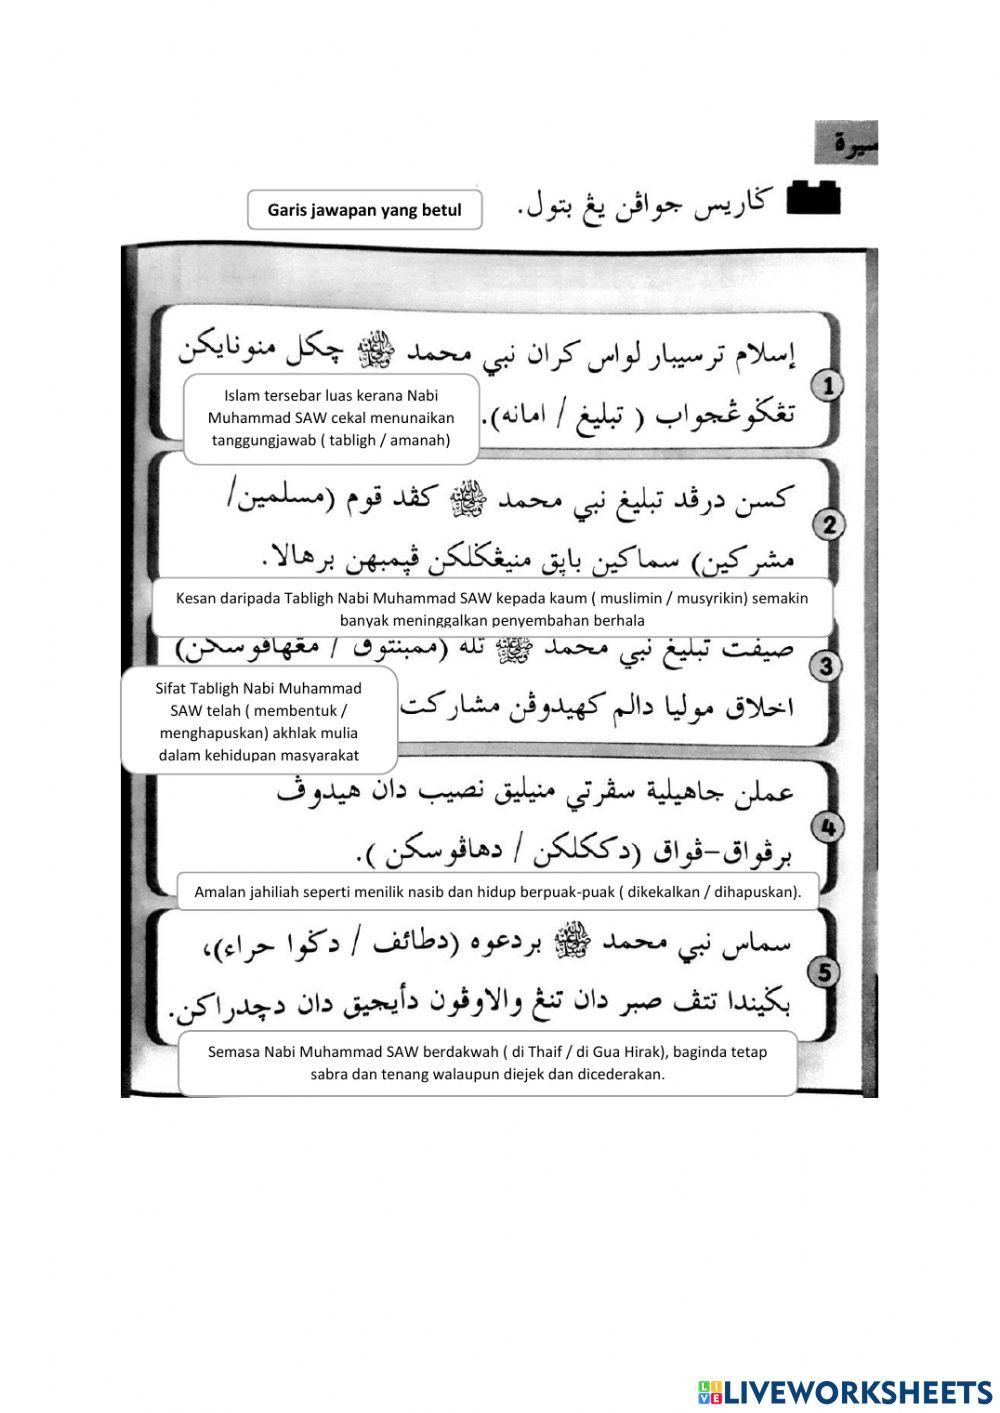 سيرة
ݢاريس جواڤن يڠ بتول.
Garis jawapan yang betul
1
إسلام ترسيبار لواس كران نبي محمد ﷺ چكل منونايكن
تڠݢوڠجواب ( تبليغ / امانه).
Islam tersebar luas kerana Nabi
Muhammad SAW cekal menunaikan
tanggungjawab ( tabligh / amanah)
2
كسن درڤد تبليغ نبي محمد ﷺ كڤد قوم (مسلمين/
مشركين) سماكين باڽق منيڠݢلكن ڤڽمبهن برهالا.
Kesan daripada Tabligh Nabi Muhammad SAW kepada kaum ( muslimin / musyrikin) semakin
banyak meninggalkan penyembahan berhala
3
صيفت تبليغ نبي محمد ﷺ تله (ممبنتوق / مڠهاڤوسكن)
اخلاق موليا دالم كهيدوڤن مشاركت
Sifat Tabligh Nabi Muhammad
SAW telah ( membentuk /
menghapuskan) akhlak mulia
dalam kehidupan masyarakat
4
عملن جاهيلية سڤرتي منيليق نصيب دان هيدوڤ
برڤواق-ڤواق (دككلكن / دهاڤوسكن ).
Amalan jahiliah seperti menilik nasib dan hidup berpuak-puak ( dikekalkan / dihapuskan).
5
سماس نبي محمد ﷺ بردعوه (دطائف / دݢوا حراء)،
بݢيندا تتڤ صبر دان تنڠ والاوڤون دأيجيق دان دچدراكن.
Semasa Nabi Muhammad SAW berdakwah ( di Thaif / di Gua Hirak), baginda tetap
sabra dan tenang walaupun diejek dan dicederakan.
LIVE LIVEWORKSHEETS